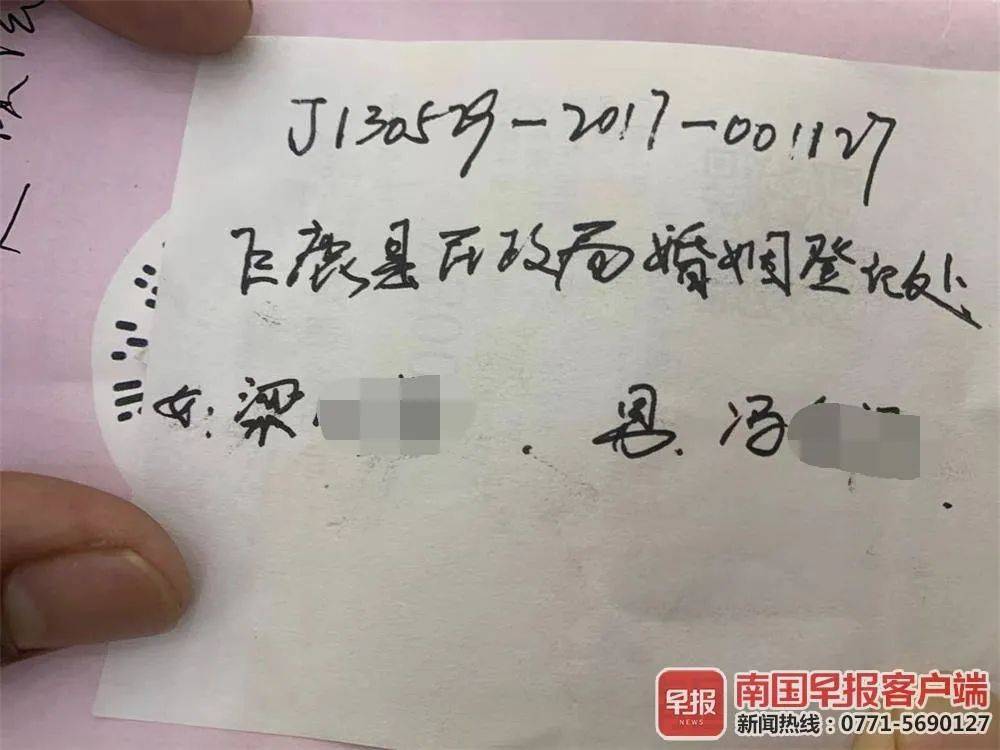 J130529-2017-001127
巨鹿县民政局婚姻登记处
女:梁
男:冯
早报
NEWS
南国早报客户端
新闻热线:0771-5690127